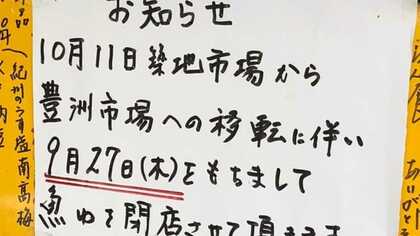 お知らせ
10月11日築地市場から
豊洲市場への移転に伴い
9月27日(木)をもちまして
魚ゆを閉店させて頂きます
紀州のうす塩南高梅